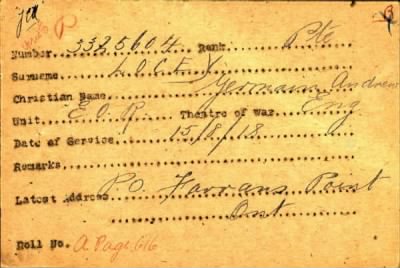 P 3
Number 3325604 Rank Pte
Surname LOCKEY
Christian Name Germain Andrew
Unit E.O.R. Theatre of War Eng
Date of Service 15/8/18
Remarks
Latest Address P.O. Farrans Point
Ont
Roll No. A Page 616